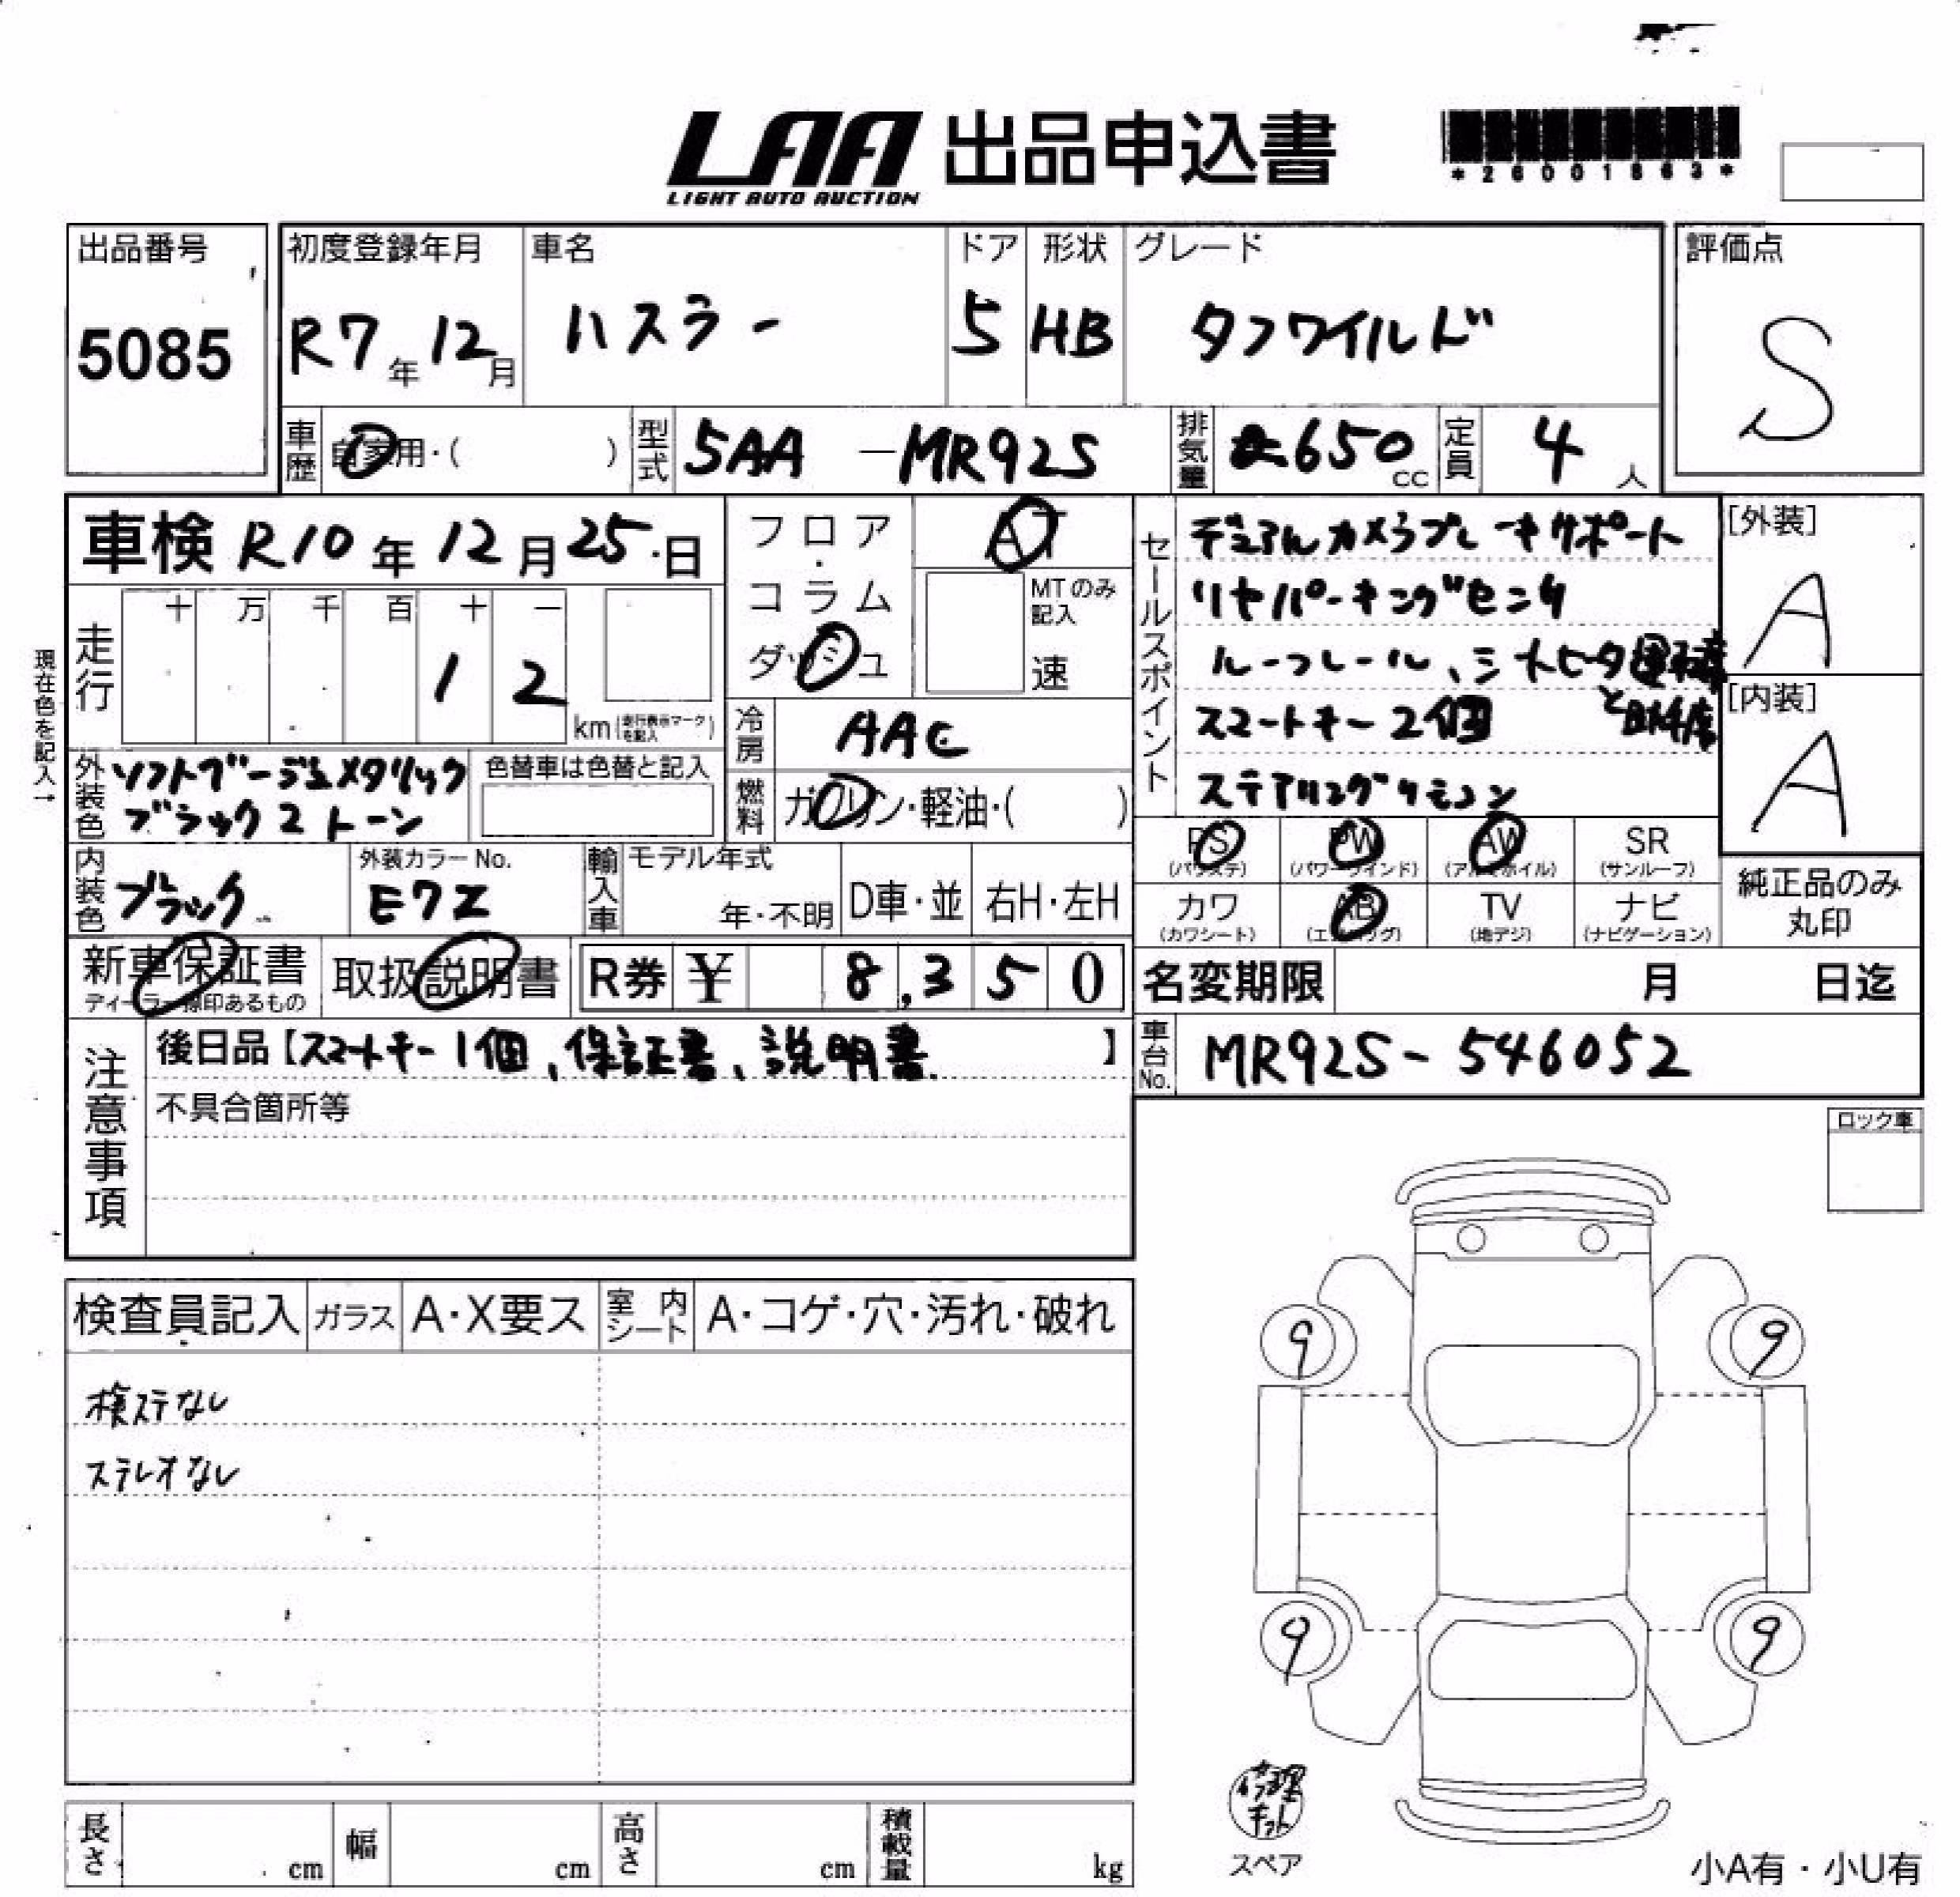 LAA 出品申込書
LIGHT AUTO AUCTION
*26001863*
出品番号
5085
初度登録年月
R7年12月
車名
ハスラー
ドア
5
形状
HB
グレード
タフワイルド
評価点
S
車歴 自家用・( )
型式 5AA-MR92S
排気量 650cc
定員 4人
車検 R10年12月25日
フロア・コラム ダッシュ
AT
MTのみ記入
速
現在色を記入→
走行 十 万 千 百 十 一
12
km(走行表示マークを記入)
冷房 AAC
燃料 ガソリン・軽油・( )
外装色 ソフトベージュメタリック
ブラック2トーン
色替車は色替と記入
内装色 ブラック
外装カラーNo.
E7Z
輸入車 モデル年式
年・不明
D車・並
右H・左H
新車保証書
ディーラー捺印あるもの
取扱説明書
R券 ¥ 8,350
セールスポイント
デュアルカメラブレーキサポート
リヤパーキングセンサ
ルーフレール、シートヒータ運転席
スマートキー2個 と助手席
ステアリングリモコン
PS
(パワステ)
PW
(パワーウインド)
AW
(アルミホイル)
SR
(サンルーフ)
カワ
(カワシート)
AB
(エアバッグ)
TV
(地デジ)
ナビ
(ナビゲーション)
[外装]
A
[内装]
A
純正品のみ
丸印
名変期限 月 日迄
車台No. MR92S-546052
注意事項
後日品【スマートキー1個、保証書、説明書.】
不具合箇所等
ロック車
検査員記入
ガラス A・X要ス
室内シート A・コゲ・穴・汚れ・破れ
検ステなし
ステレオなし
9 9
9 9
修理キット
スペア
長さ cm
幅 cm
高さ cm
積載量 kg
小A有・小U有